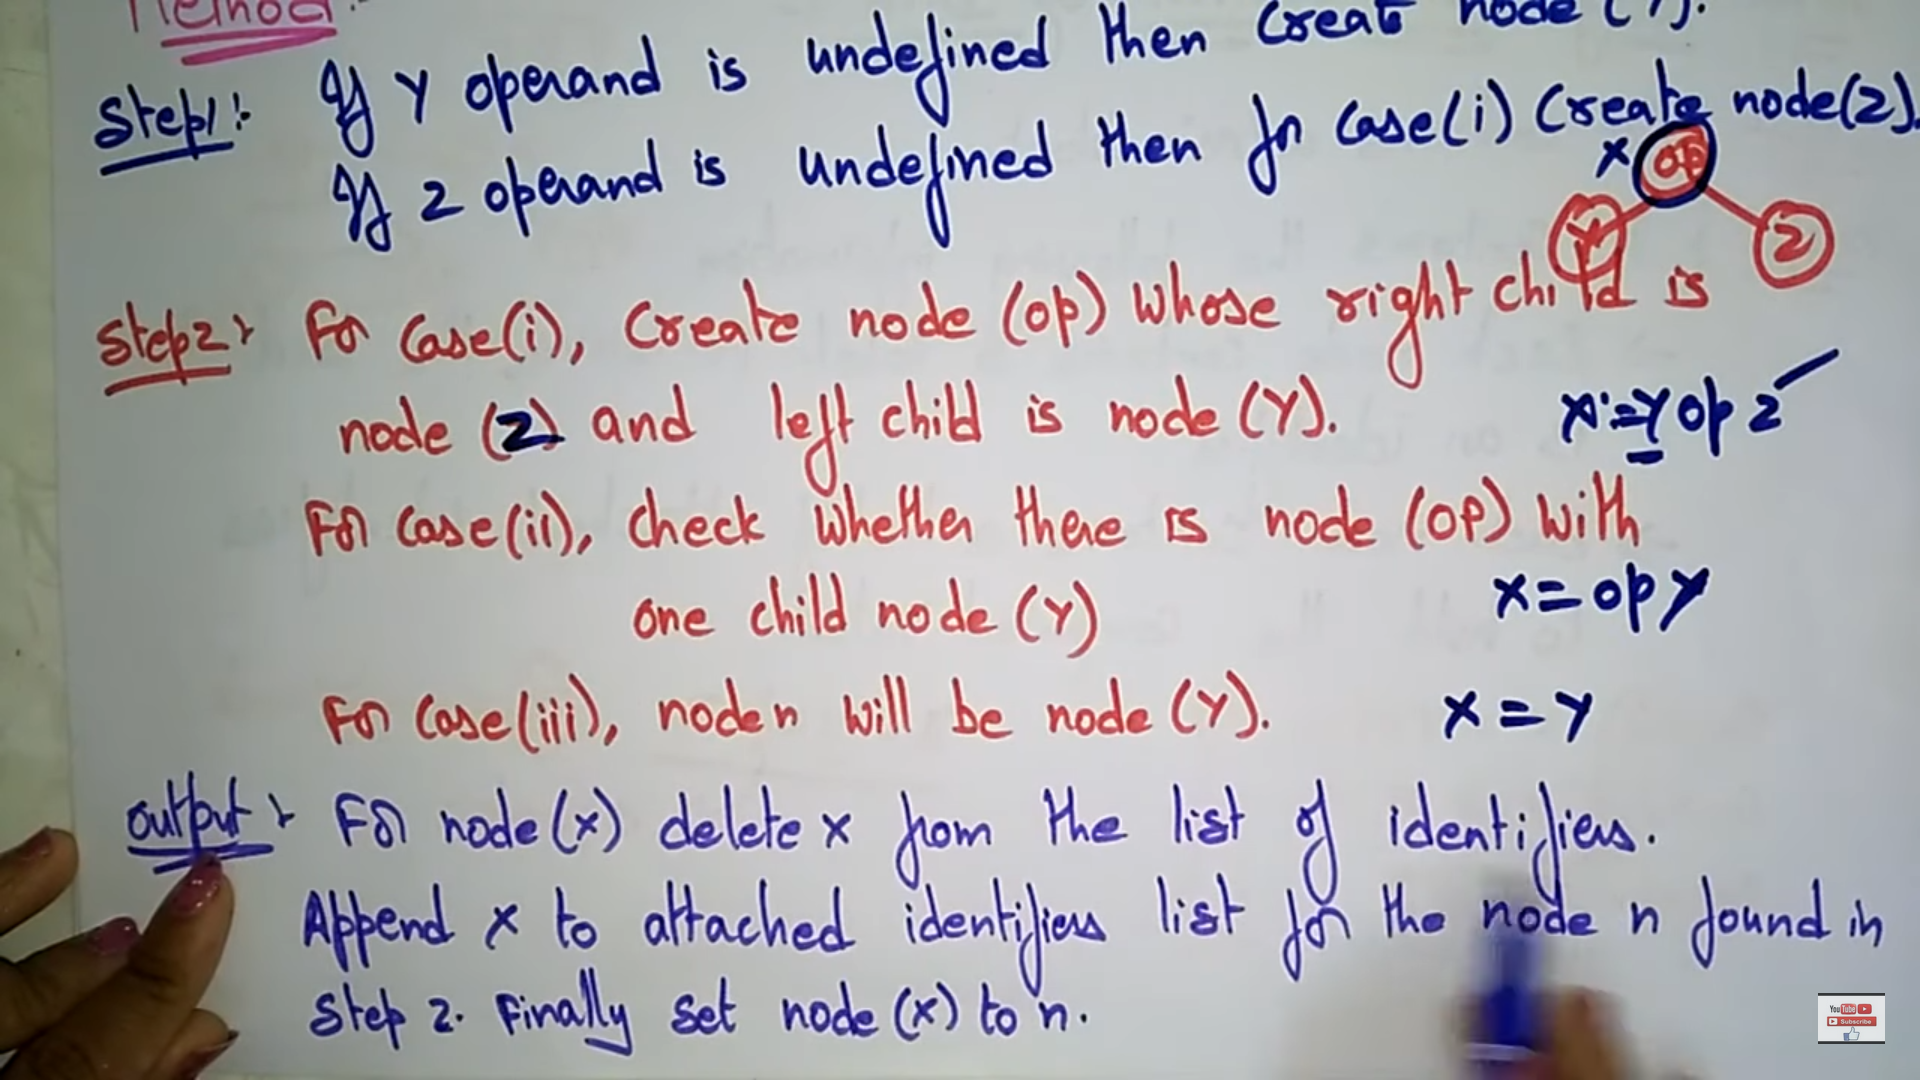 Method:-
Step1:- If Y operand is undefined then create node (Y).
If Z operand is undefined then for case(i) create node(Z).
X op
Y Z
Step2:- For case(i), create node (op) whose right child is
node (Z) and left child is node (Y).
X:=Y op Z
For case(ii), check whether there is node (op) with
one child node (Y)
X=op Y
For case(iii), node n will be node (Y).
X=Y
output:- For node(x) delete x from the list of identifiers.
Append x to attached identifiers list for the node n found in
step 2. Finally set node (x) to n.
YouTube
Subscribe